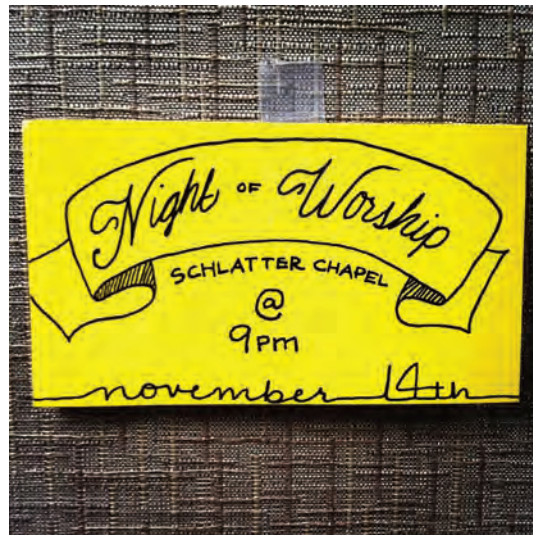 Night OF Worship
SCHLATTER CHAPEL
@
9pm
november 14th